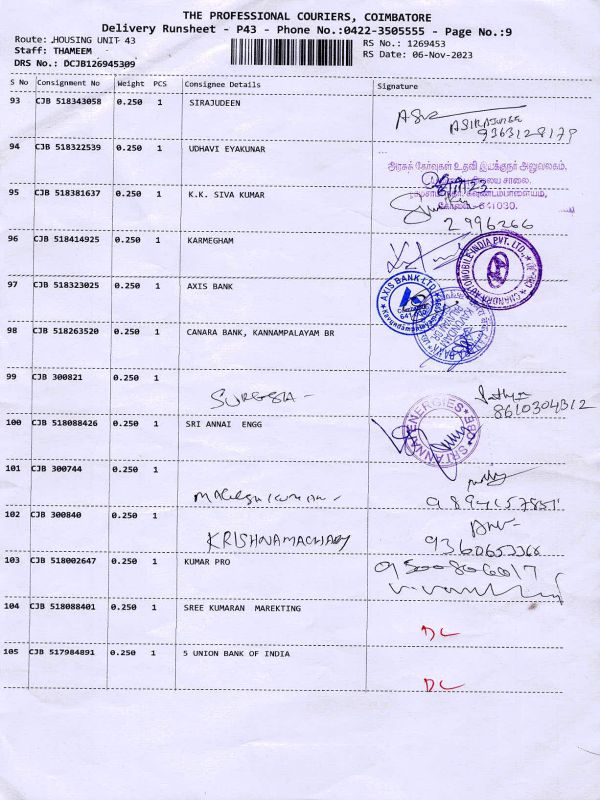 THE PROFESSIONAL COURIERS, COIMBATORE
Delivery Runsheet - P43 - Phone No.:0422-3505555 - Page No.:9
Route: .HOUSING UNIT 43
Staff: THAMEEM
DRS No.: DCJB126945309
RS No.: 1269453
RS Date: 06-Nov-2023
S No Consignment No Weight PCS Consignee Details Signature
93 CJB 518343058 0.250 1 SIRAJUDEEN
9363128179
94 CJB 518322539 0.250 1 UDHAVI EYAKUNAR
அரசுத் தேர்வுகள் உதவி இயக்குநர் அலுவலகம்,
95 CJB 518381637 0.250 1 K.K. SIVA KUMAR
641030.
2996266
96 CJB 518414925 0.250 1 KARMEGHAM
97 CJB 518323025 0.250 1 AXIS BANK
AXIS BANK LTD.
98 CJB 518263520 0.250 1 CANARA BANK, KANNAMPALAYAM BR
99 CJB 300821 0.250 1
8610304312
100 CJB 518088426 0.250 1 SRI ANNAI ENGG
SRI ANNAI ENERGIES
101 CJB 300744 0.250 1
102 CJB 300840 0.250 1 KRISHNAMACHARY
103 CJB 518002647 0.250 1 KUMAR PRO
9500806017
104 CJB 518088401 0.250 1 SREE KUMARAN MAREKTING
DC
105 CJB 517984891 0.250 1 5 UNION BANK OF INDIA
DC